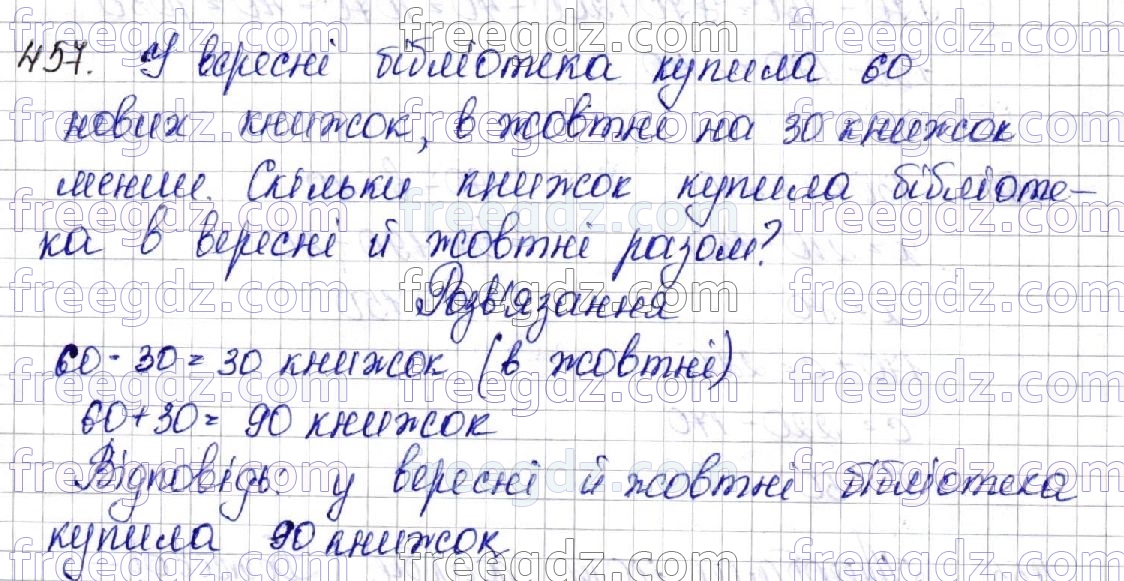 457. У вересні бібліотека купила 60
нових книжок, в жовтні на 30 книжок
менше. Скільки книжок купила бібліоте-
ка в вересні й жовтні разом?
Розв'язання
60 - 30 = 30 книжок (в жовтні)
60 + 30 = 90 книжок
Відповідь: у вересні й жовтні бібліотека
купила 90 книжок